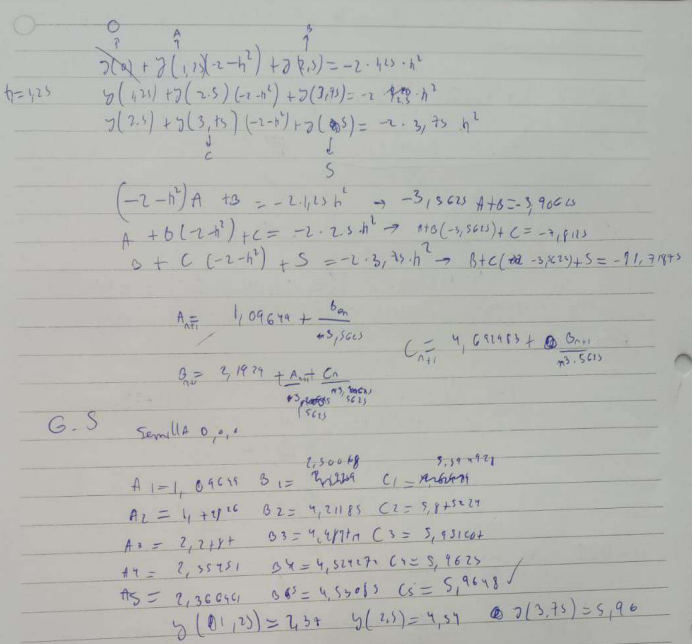 0 A B
y(0) + y(1,25)(-2-h²) + y(2,5) = -2 · 1,25 · h²
h=1,25 y(1,25) + y(2.5)(-2-h²) + y(3,75) = -2 · 2.5 · h²
y(2.5) + y(3,75)(-2-h²) + y(5) = -2 · 3,75 h²
C
5
(-2-h²)A + B = -2·1,25h² → -3,5625 A+B=-3,90625
A + B(-2-h²) + C = -2·2.5h² → A+B(-3,5625)+C=-7,8125
B + C(-2-h²) + 5 = -2·3,75·h² → B+C(-3,5625)+5=-11,71875
A n+1 = 1,09649 + Bn / 3,5625
C n+1 = 4,692983 + B n+1 / 3.5625
B n+1 = 2,1929 + A n+1 + Cn / 3,5625
G.S Semilla 0,0,0
2,50068 5,394928
A1=1,09649 B1= C1=
A2 = B2=4,21185 C2=
A3 = B3= C3=
A4= 2,35451 B4= C4=5,9625
A5= B5=4,53085 C5=5,9648 ✓
y(1,25)=2,37 y(2,5)=4,54 y(3,75)=5,96